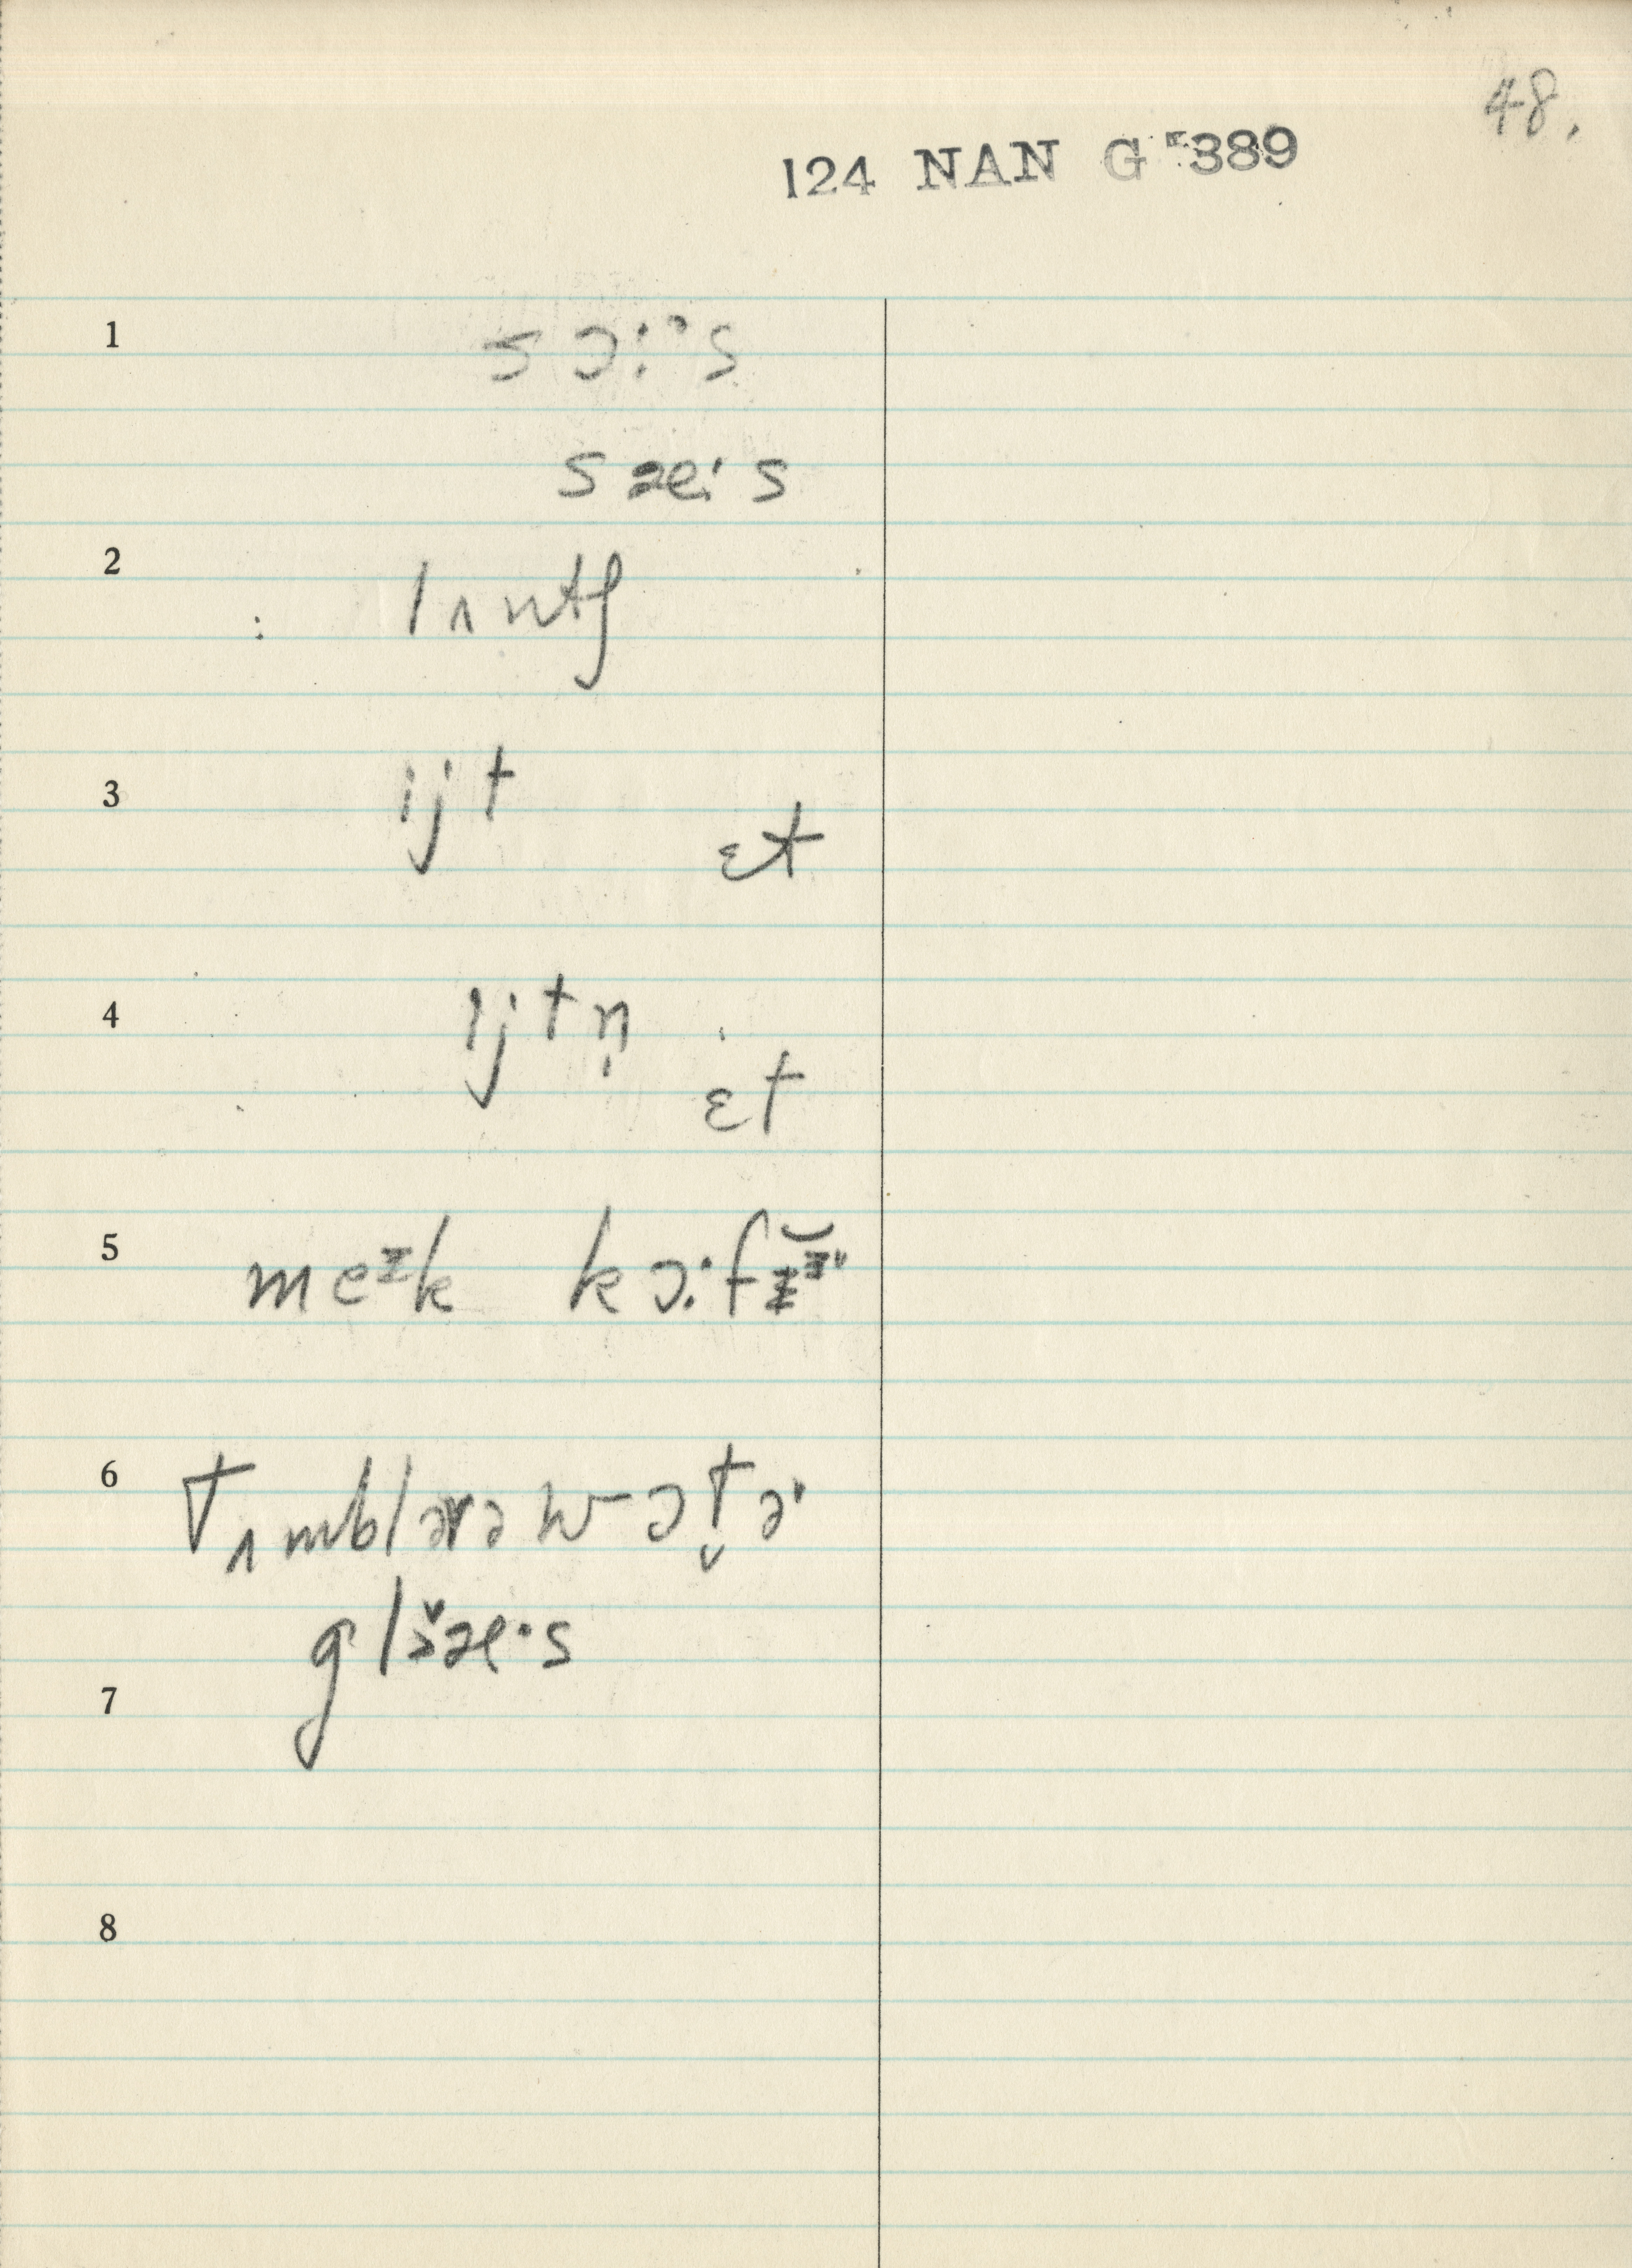 48.
124 NAN G 389
1 sɔ:ᵊs
sæ:s
2 lʌntʃ
3 ijt
ɛt
4 ijtn̩
ɛt
5 meᶦk kɔ:f
6 tʌmblərə wɔt̬ɚ
glæ·s
7
8